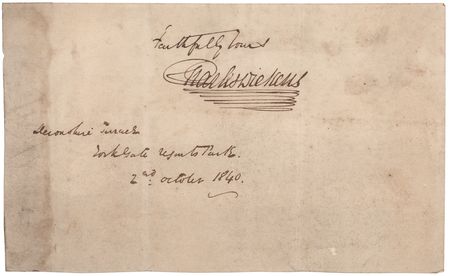 Faithfully Yours
Charles Dickens
Devonshire Terrace
York Gate Regents Park.
2nd. October 1840.